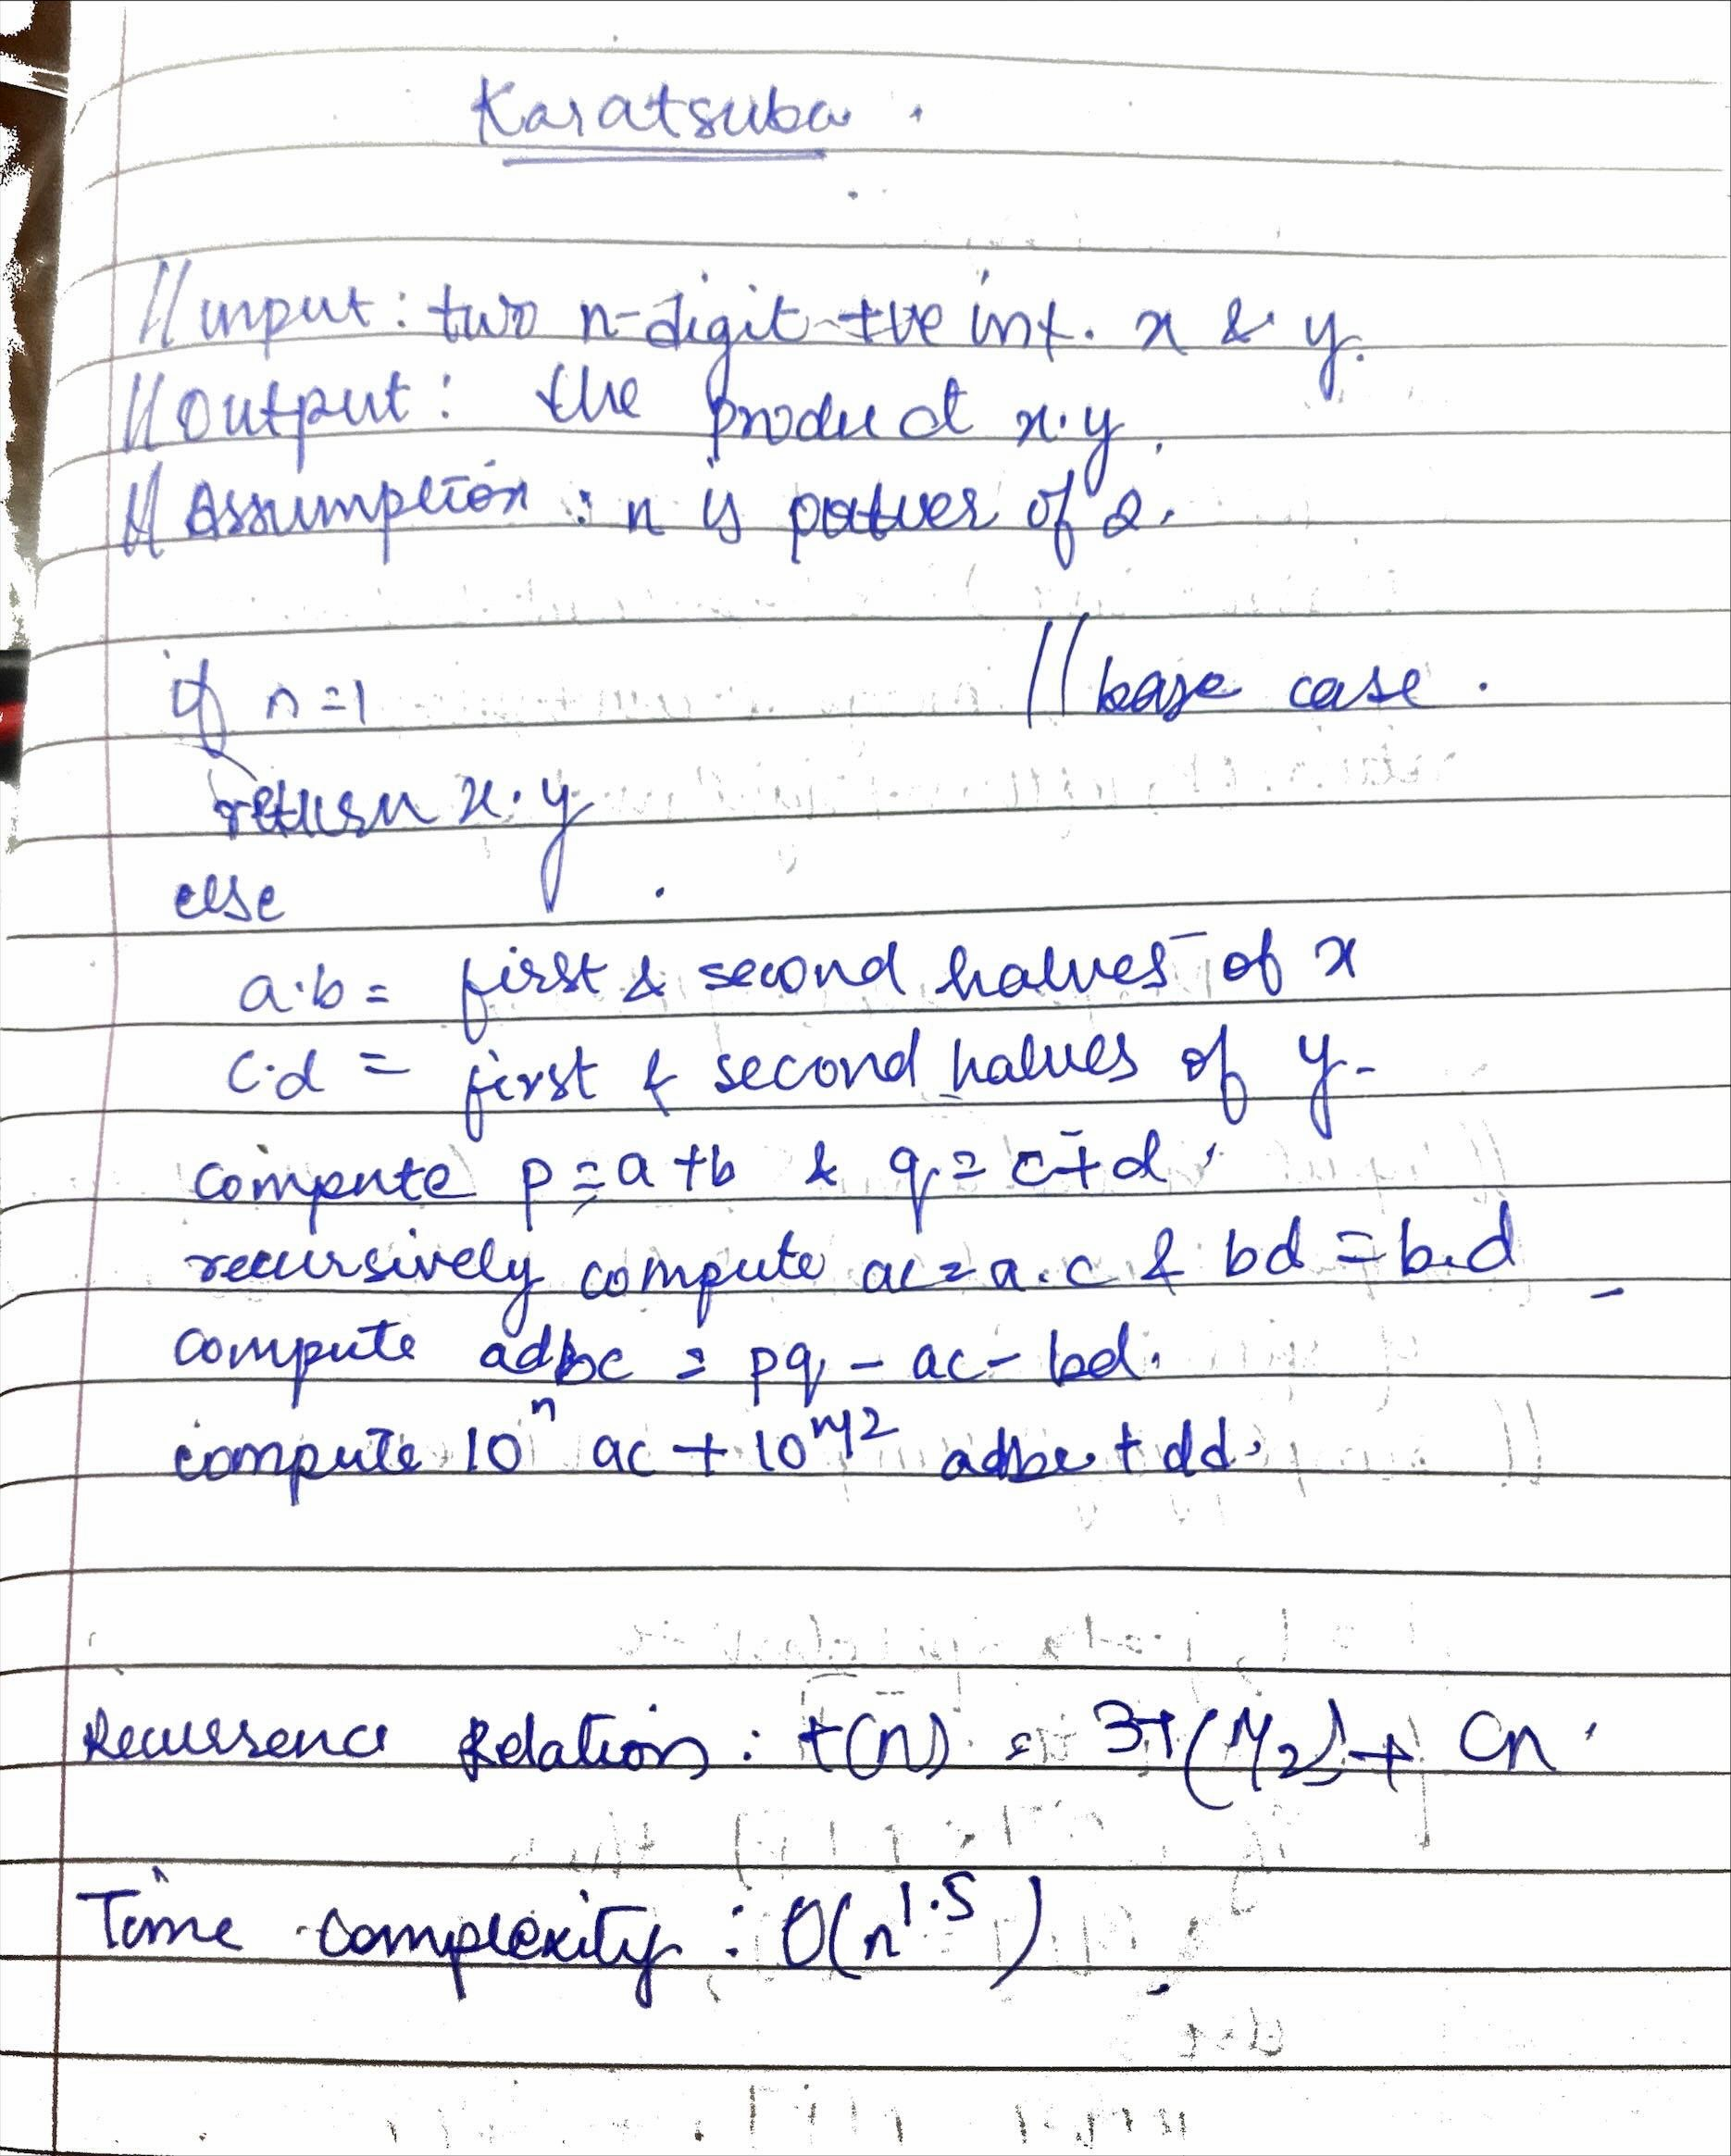 Karatsuba.
//input: two n-digit +ve int. x & y.
//output: the product x.y.
//Assumption: n is power of 2.
if n=1 //base case.
return x.y
else
a.b= first & second halves of x
c.d = first & second halves of y.
compute p=a+b & q=c+d.
recursively compute ac=a.c & bd=b.d
compute adbc = pq - ac - bd.
compute 10^n ac + 10^n/2 adbc + dd.
Recurrence Relation: t(n) = 3T(n/2)+ Cn.
Time complexity: O(n^1.5)